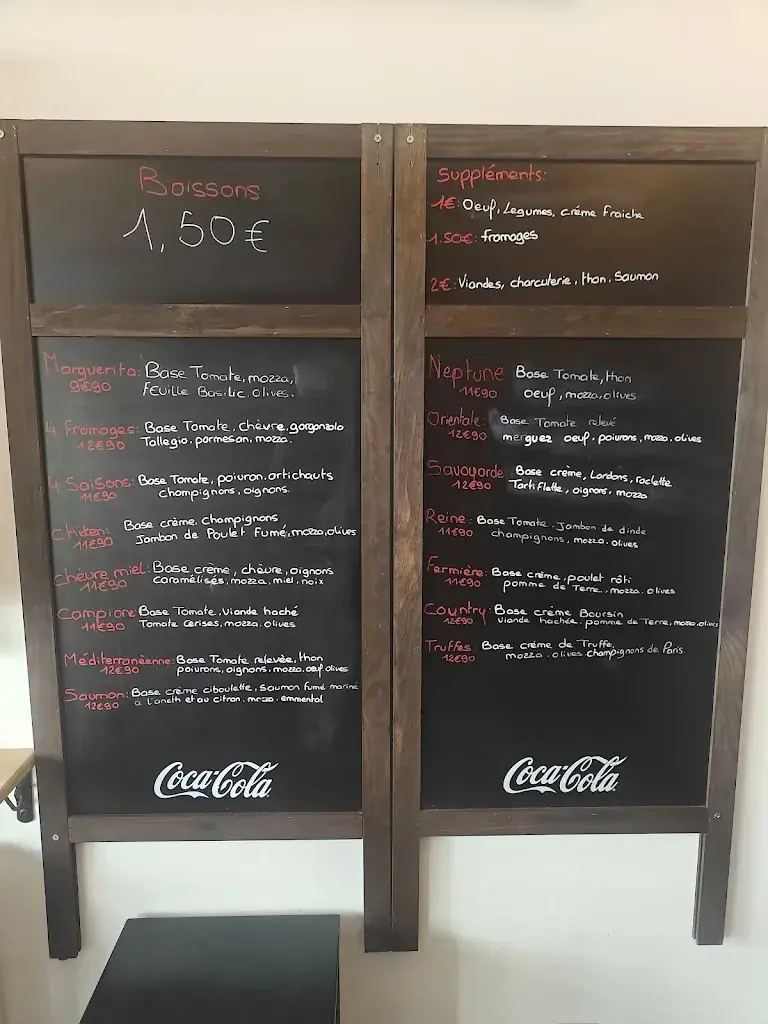 Boissons
1,50€
Marguerita: Base Tomate, mozza,
9€90 feuille Basilic, olives.
4 fromages: Base Tomate, chèvre, gorgonzola
12€90 Tallegio, parmesan, mozza.
4 Saisons: Base Tomate, poivron, artichauts
11€90 champignons, oignons.
Chicken: Base crème, champignons
11€90 Jambon de Poulet Fumé, mozza, olives
chèvre miel: Base crème, chèvre, oignons
11€90 caramélisés, mozza, miel, noix
Campione Base Tomate, viande haché
11€90 Tomate cerises, mozza, olives
Méditerranèenne: Base Tomate relevèe, thon
12€90 poivrons, oignons, mozza, oeuf, olives
Saumon: Base crème ciboulette, saumon fumé mariné
12€90 à l'aneth et au citron, mozza, emmental
Coca-Cola
Suppléments:
1€: Oeuf, Legumes, crème fraiche
1.50€: fromages
2€: Viandes, charcuterie, thon, Saumon
Neptune Base Tomate, thon
11€90 oeuf, mozza, olives
Orientale: Base Tomate relevé
12€90 merguez oeuf, poivrons, mozza, olives
Savoyarde Base crème, Lardons, raclette
12€90 Tartiflette, oignons, mozza
Reine: Base Tomate, Jambon de dinde
11€90 champignons, mozza, olives
Fermière: Base crème, poulet rôti
11€90 pomme de Terre, mozza, olives
Country: Base crème Boursin
12€90 viande hachée, pomme de Terre, mozza, olives
Truffes: Base crème de Truffe,
12€90 mozza, olives, champignons de Paris.
Coca-Cola